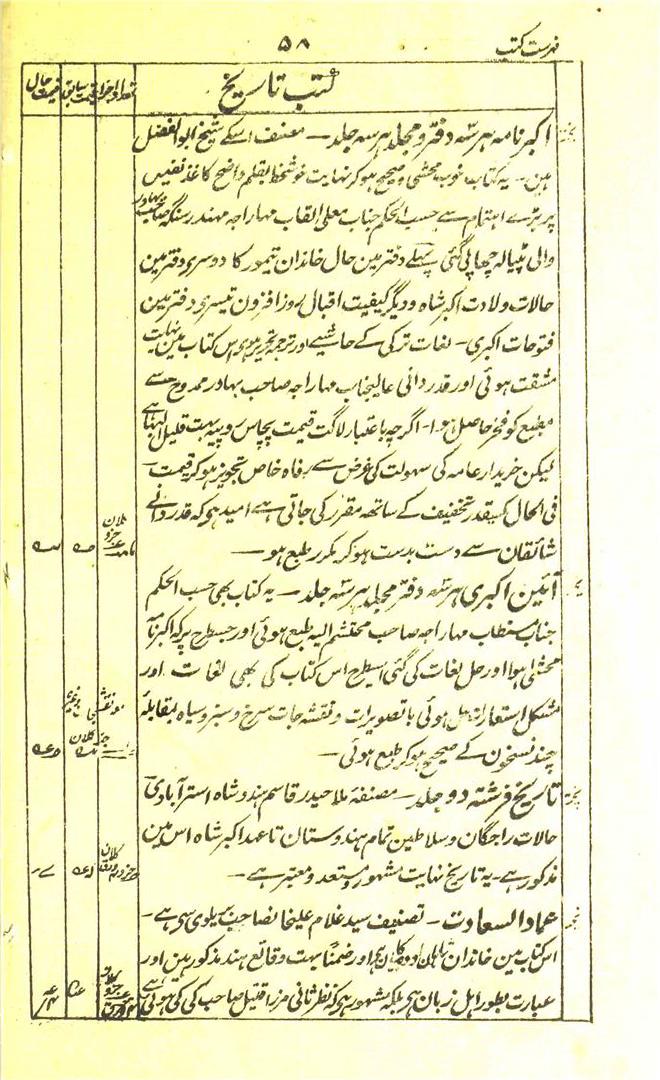 فہرست کتب
۵۸
کتب تاریخ
تعداد اجزا
قیمت سابق
قیمت حال
اکبر نامہ ہر سہ دفتر و مجلد ہر سہ جلد — مصنف اسکے شیخ ابوالفضل
ہین — یہ کتاب خوب محشی و صحیح ہو کر نہایت خوشخط بقلم واضح کاغذ نفیس
پر بڑے اہتمام سے حسب الحکم جناب معلی القاب مہاراجہ مہندر سنگہ صاحب بہادر
والی پٹیالہ چھاپی گئی پہلے دفتر مین حال خاندان تیمور کا دوسری دفتر مین
حالات ولادت اکبر شاہ و دیگر کیفیت اقبال روز افزون تیسری دفتر مین
فتوحات اکبری — لغات ترکی کے حاشیے اور ترجمہ تحریر ہوی اس کتاب مین نہایت
مشقت ہوئی اور قدردانی عالیجناب مہاراجہ صاحب بہادر ممدوح سے
مطبع کو فخر حاصل ہوا — اگرچہ باعتبار لاگت قیمت پچاس روپیہ بہت قلیل
لیکن خریدار عامہ کی سہولت کی غرض سے رفاہ خاص تجویز ہو کر قیمت
فی الحال کسیقدر تخفیف کے ساتھ مقرر کی جاتی ہے امید ہی کہ قدردانے
شائقان سے دست بدست ہو کر مکرر طبع ہو —
آئین اکبری ہر سہ دفتر مجلد ہر سہ جلد — یہ کتاب بھی حسب الحکم
جناب مستطاب مہاراجہ صاحب محتشم الیہ طبع ہوئی اور جسطرح پر کہ اکبر نامہ
محشی ہوا اور حل لغات کی گئی اسیطرح اس کتاب کی بھی لغات اور
مشکل استعارات حل ہوئی با تصویرات و نقشہ جات سرخ و سبز و سیاہ بمقابلہ
چند نسخون کے صحیح ہو کر طبع ہوئی —
تاریخ فرشتہ دو جلد — مصنفہ ملا حیدر قاسم ہندو شاہ استرآبادی
حالات راجگان و سلاطین تمام ہندوستان تا عہد اکبر شاہ اس مین
مذکور ہے — یہ تاریخ نہایت مشہور و مستعد و معتبر ہے —
عماد السعادت — تصنیف سید غلام علیخانصاحب بریلوی سی ہے —
اس کتاب مین خاندان شاہان اودہ کا بیان ہی اور ضمناً بہت وقائع ہند مذکور ہین اور
عبارت بطور اہل زبان ہی بلکہ مشہور ہی کہ نظر ثانی مرزا قتیل صاحب کی کی ہوئی ہے